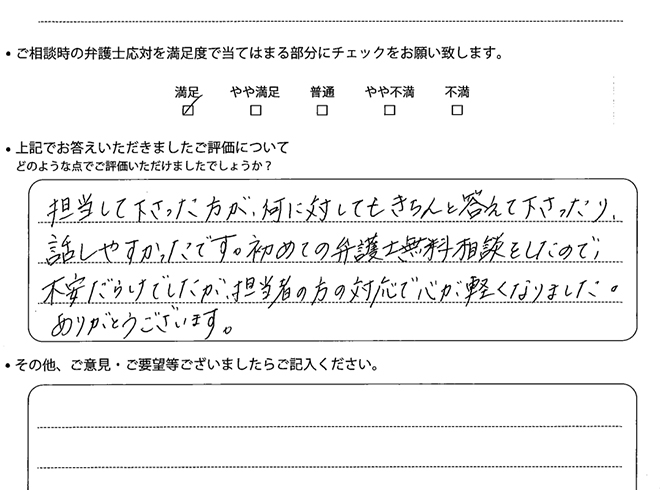 • ご相談時の弁護士応対を満足度で当てはまる部分にチェックをお願い致します。
満足 やや満足 普通 やや不満 不満
☑ □ □ □ □
• 上記でお答えいただきましたご評価について
どのような点でご評価いただけましたでしょうか？
担当して下さった方が、何に対してもきちんと答えて下さったり、
話しやすかったです。初めての弁護士無料相談をしたので、
不安だらけでしたが、担当者の方の対応で心が軽くなりました。
ありがとうございます。
• その他、ご意見・ご要望等ございましたらご記入ください。